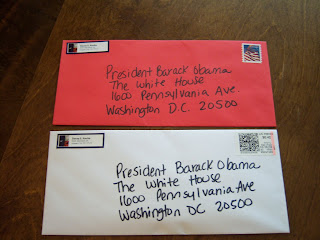 President Barack Obama
The White House
1600 Pennsylvania Ave.
Washington D.C. 20500
President Barack Obama
The White House
1600 Pennsylvania Ave
Washington DC 20500